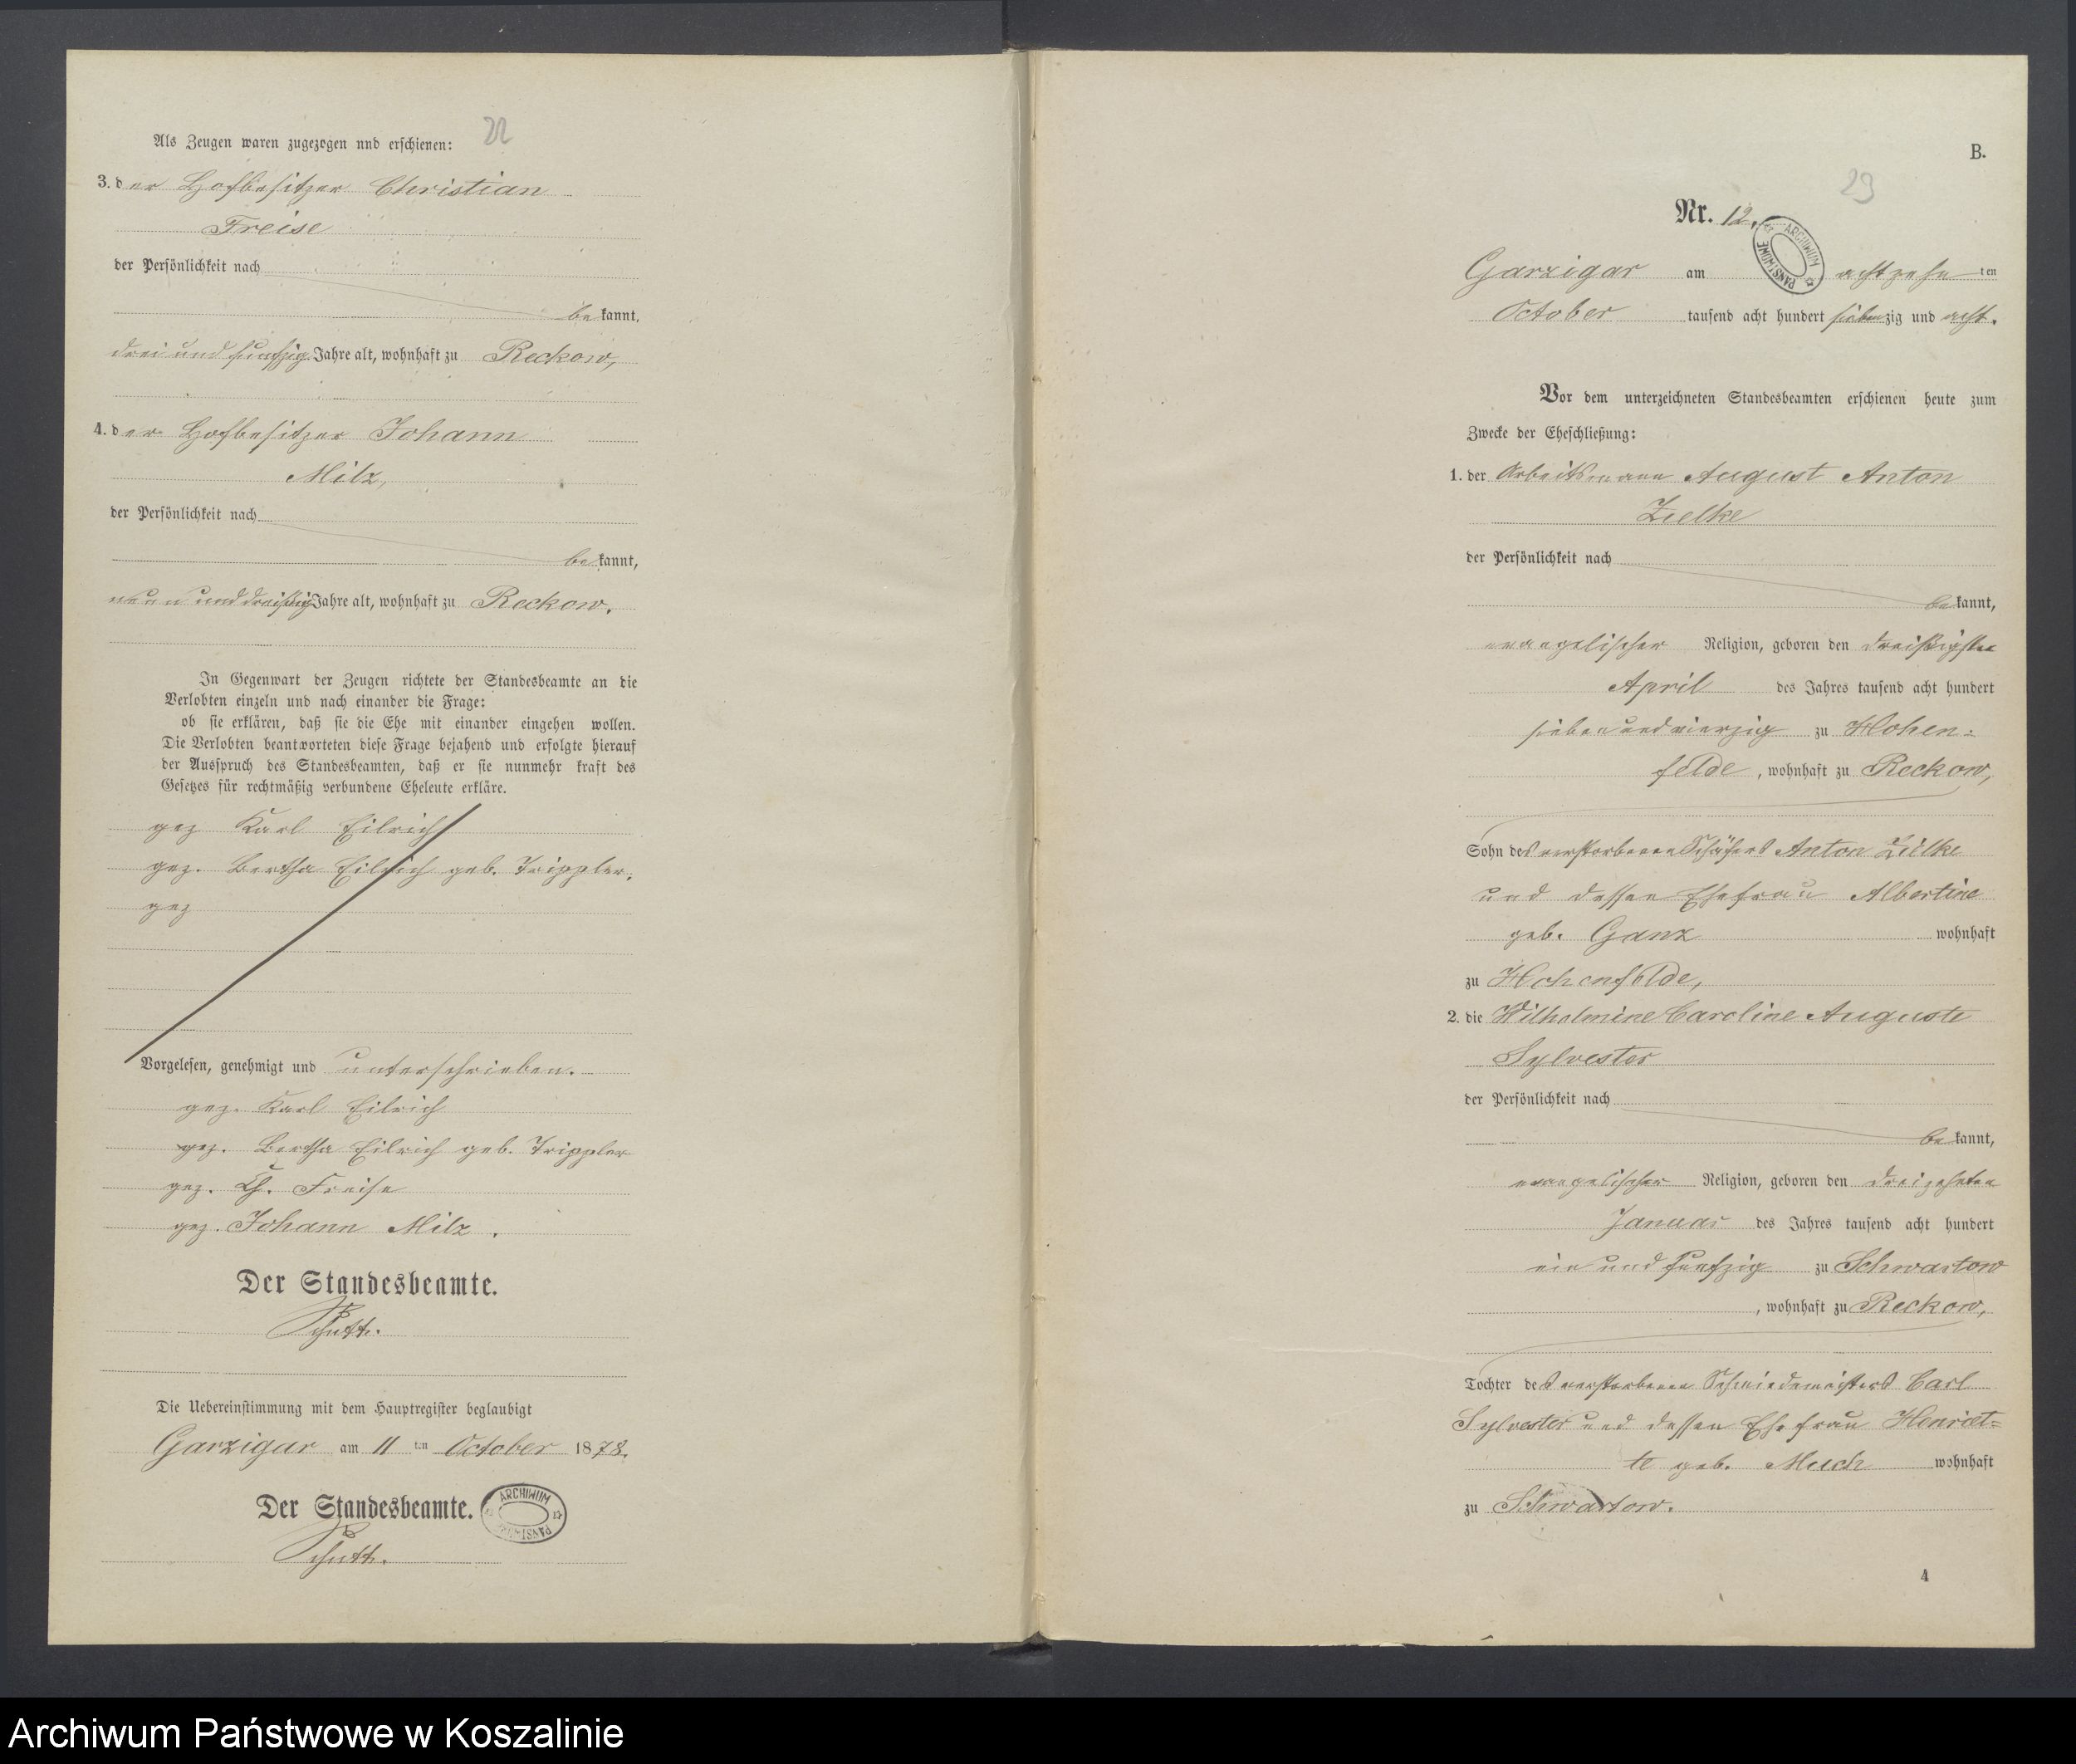 22
Als Zeugen waren zugezogen und erschienen:
3. der Hofbesitzer Christian
Freise
der Persönlichkeit nach
bekannt,
drei und fünfzig Jahre alt, wohnhaft zu Reckow,
4. der Hofbesitzer Johann
Milz,
der Persönlichkeit nach
bekannt,
neun und dreißig Jahre alt, wohnhaft zu Reckow.
In Gegenwart der Zeugen richtete der Standesbeamte an die
Verlobten einzeln und nach einander die Frage:
ob sie erklären, daß sie die Ehe mit einander eingehen wollen.
Die Verlobten beantworteten diese Frage bejahend und erfolgte hierauf
der Ausspruch des Standesbeamten, daß er sie nunmehr kraft des
Gesetzes für rechtmäßig verbundene Eheleute erkläre.
gez Karl Eilrich
gez. Bertha Eilrich geb. Trippler.
gez
Vorgelesen, genehmigt und unterschrieben.
gez. Karl Eilrich
gez. Bertha Eilrich geb. Trippler
gez. Ch. Freise
gez. Johann Milz.
Der Standesbeamte.
Schutt.
Die Uebereinstimmung mit dem Hauptregister beglaubigt
Garzigar am 11 ten October 1878.
Der Standesbeamte.
ARCHIWUM PAŃSTWOWE
Schutt.
B.
23
Nr. 12.
ARCHIWUM PAŃSTWOWE
Garzigar am achtzehn ten
October tausend acht hundert siebenzig und acht.
Vor dem unterzeichneten Standesbeamten erschienen heute zum
Zwecke der Eheschließung:
1. der Arbeitsmann August Anton
Zielke
der Persönlichkeit nach
bekannt,
evangelischer Religion, geboren den dreißigsten
April des Jahres tausend acht hundert
sieben und vierzig zu Hohen=
felde, wohnhaft zu Reckow,
Sohn des verstorbenen Schäfers Anton Zielke
und dessen Ehefrau Albertine
geb. Ganz wohnhaft
zu Hohenfelde,
2. die Wilhelmine Caroline Auguste
Sylvester
der Persönlichkeit nach
bekannt,
evangelischer Religion, geboren den dreizehnten
Januar des Jahres tausend acht hundert
ein und fünfzig zu Schwartow
, wohnhaft zu Reckow,
Tochter des verstorbenen Schmiedemeisters Carl
Sylvester und dessen Ehefrau Henriet=
te geb. Much wohnhaft
zu Schwartow.
4
Archiwum Państwowe w Koszalinie